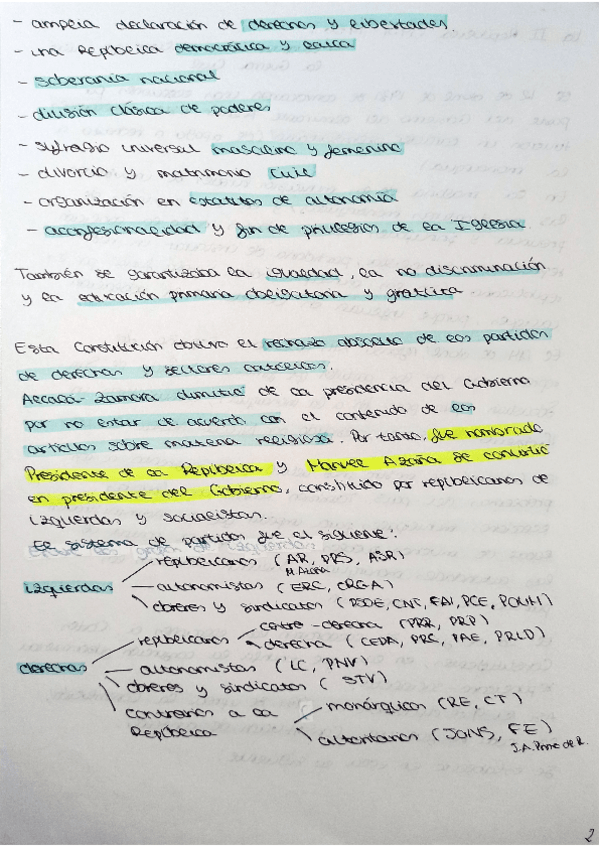 - amplia declaración de derechos y libertades
- una República democrática y laica
- soberanía nacional
- división clásica de poderes
- sufragio universal masculino y femenino
- divorcio y matrimonio civil
- organización en estatutos de autonomía
- aconfesionalidad y fin de privilegios de la Iglesia
También se garantizaba la igualdad, la no discriminación
y la educación primaria obligatoria y gratuita
Esta Constitución obtuvo el rechazo absoluto de los partidos
de derechas y sectores católicos.
Alcalá-Zamora dimitió de la presidencia del Gobierno
por no estar de acuerdo con el contenido de los
artículos sobre materia religiosa. Por tanto, fue nombrado
Presidente de la República y Manuel Azaña se convirtió
en presidente del Gobierno, constituido por republicanos de
izquierdas y socialistas.
El sistema de partidos fue el siguiente:
izquierdas
republicanos (AR, PRS, ASR)
M. Azaña
autonomistas (ERC, ORGA)
obreros y sindicatos (PSOE, CNT, FAI, PCE, POUM)
derechas
republicanos
centro-derecha (PRR, PRP)
derecha (CEDA, PRC, PAE, PRLD)
autonomistas (LC, PNV)
obreros y sindicatos (STV)
contrarios a la
República
monárquicos (RE, CT)
(JONS, FE)
J.A. Primo de R.
2